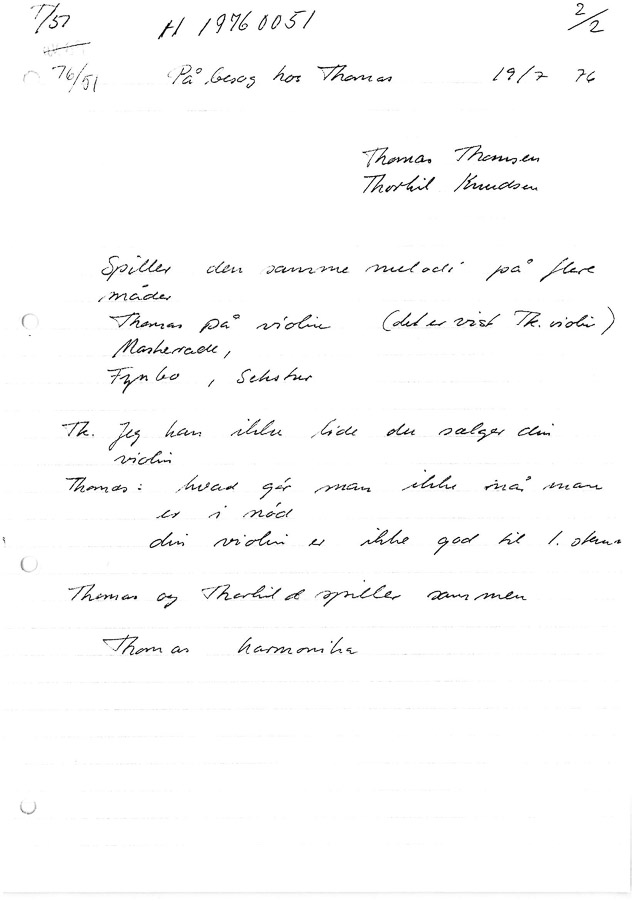 T/51
H 19760051
2/2
76/51 På besøg hos Thomas 19/7 76
Thomas Thomsen
Thorkil Knudsen
Spiller den samme melodi på flere
måder
Thomas på violin (det er vist Tk. violin)
Maskerrade,
Fynbo ,
Tk. Jeg kan ikke lide du sælger din
violin
Thomas: hvad gør man ikke når man
er i nød
din violin er ikke god til 1. stem
Thomas og Thorkild spiller sammen
Thomas harmonika